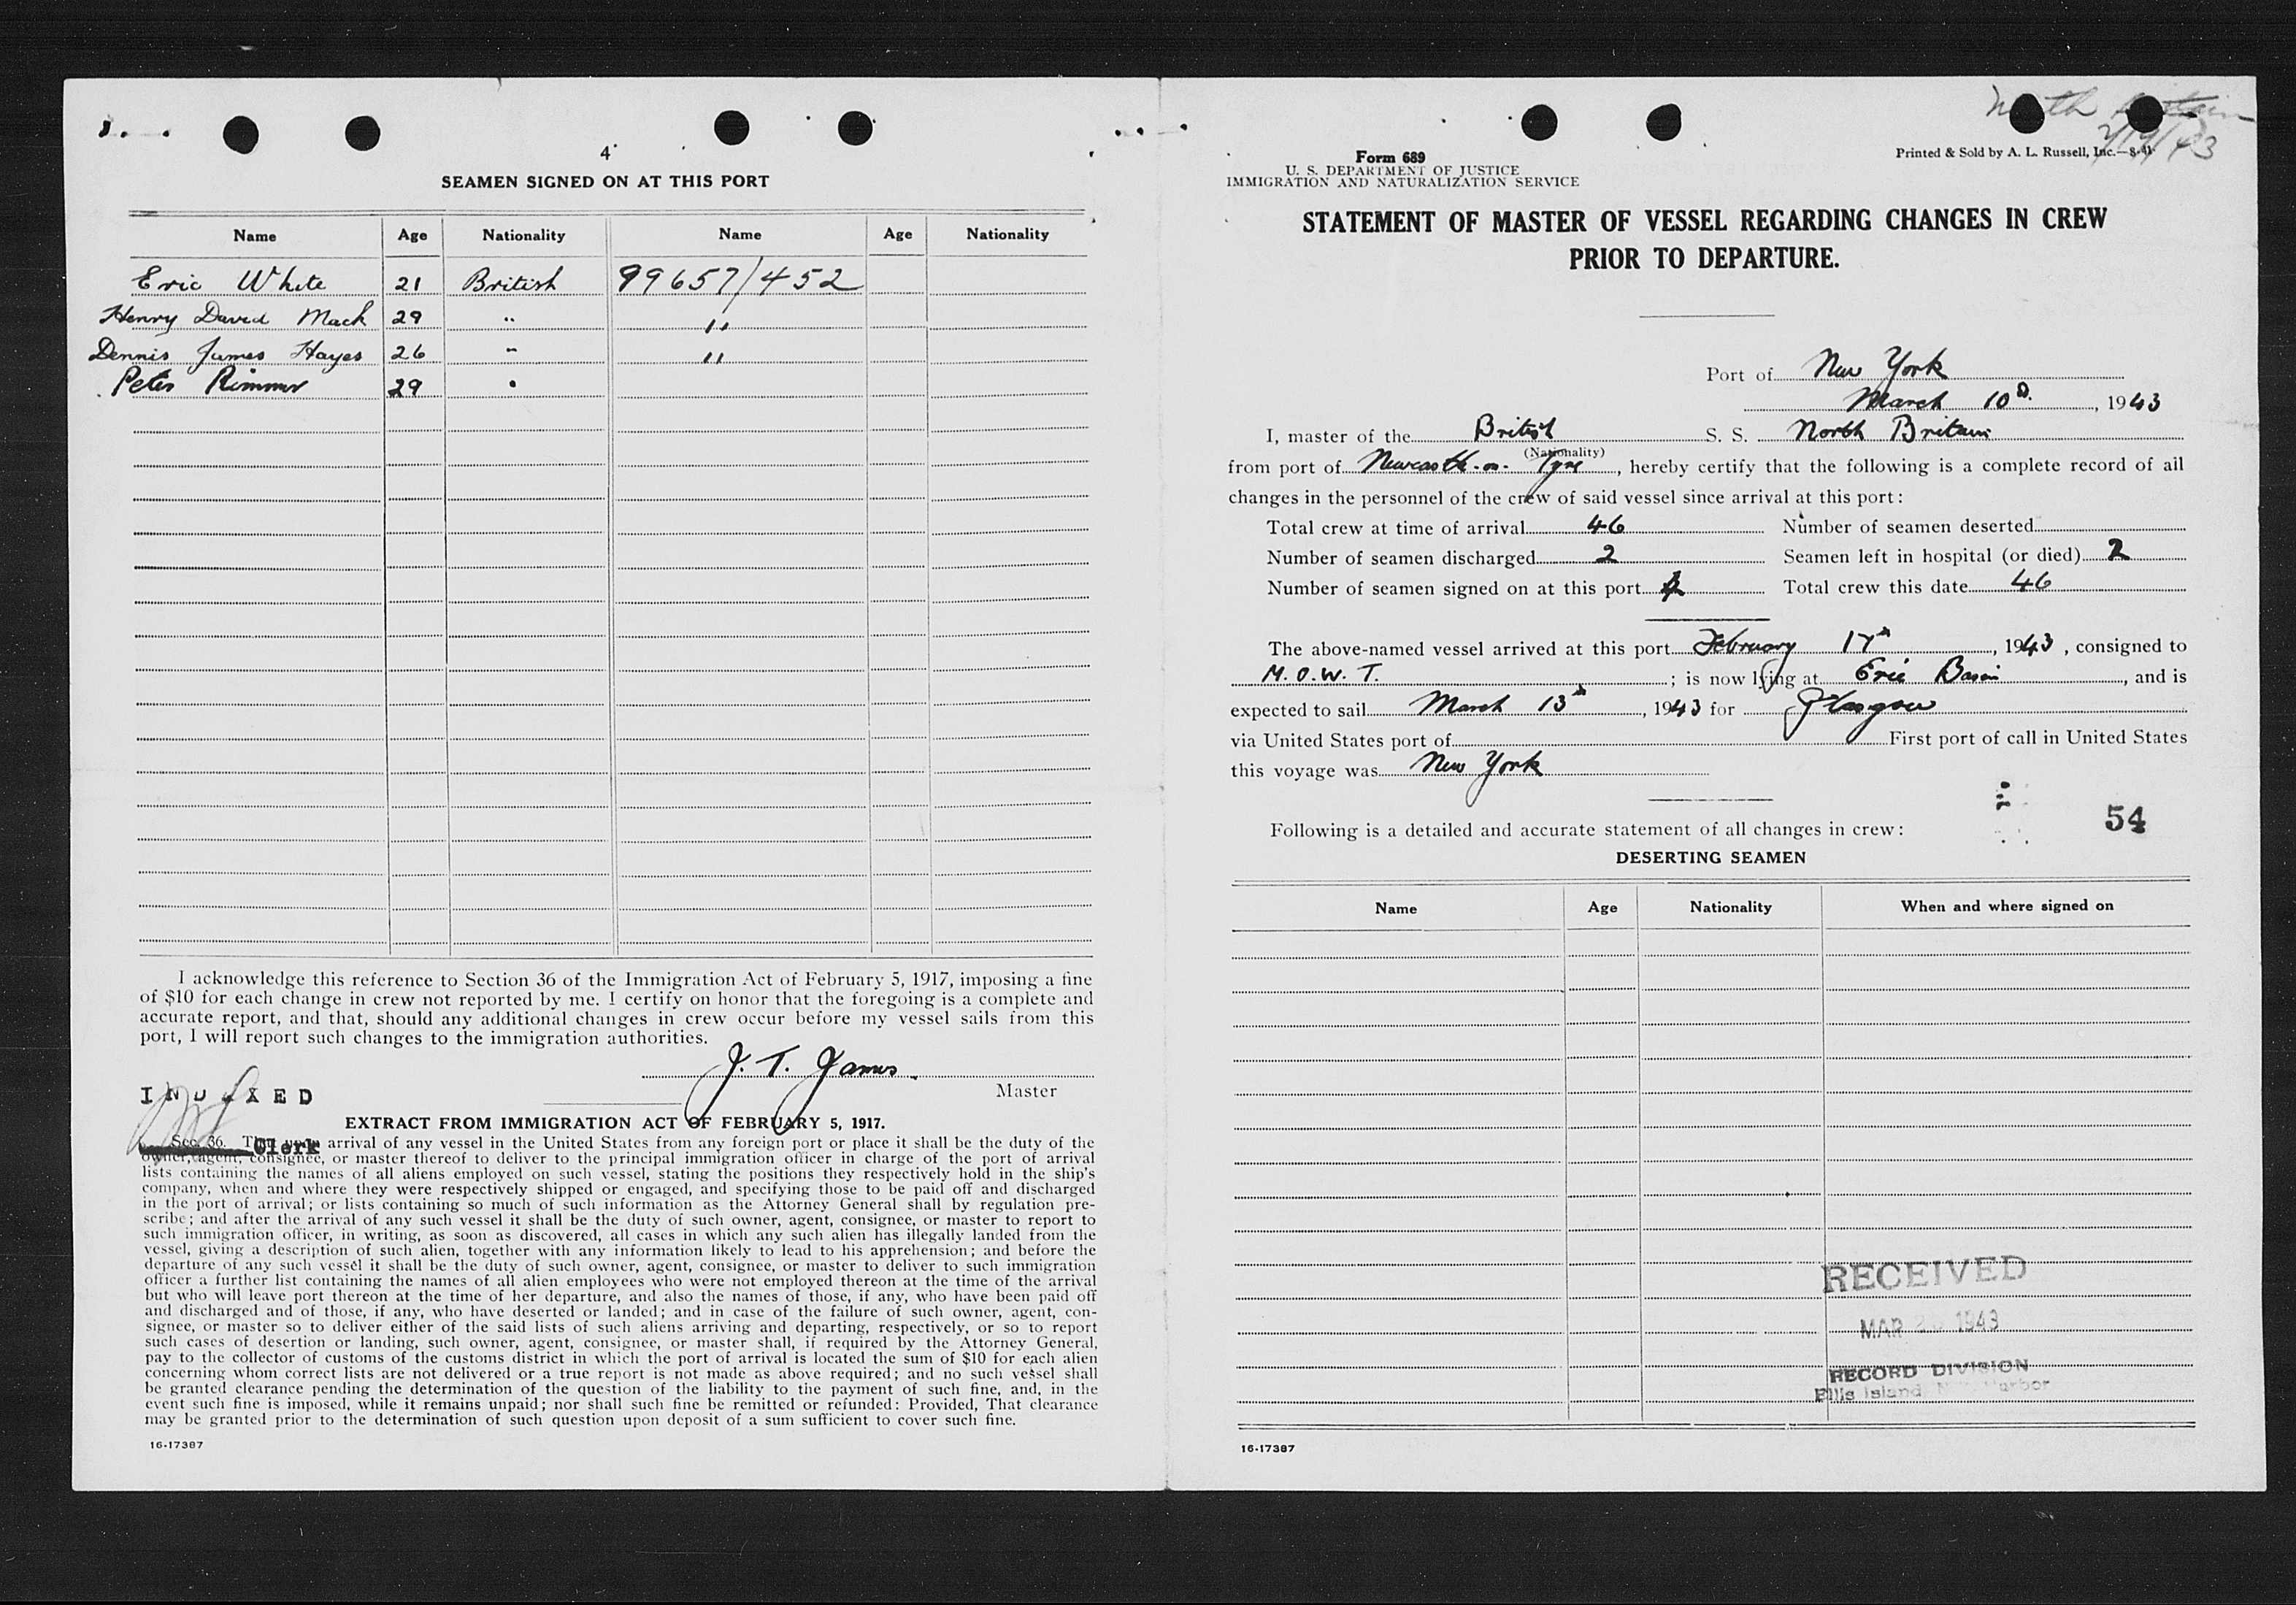 4
SEAMEN SIGNED ON AT THIS PORT
Name Age Nationality Name Age Nationality
Eric White 21 British 99657/452
Henry David Mack 29 " "
Dennis James Hayes 26 " "
Peter Rimmer 29 "
I acknowledge this reference to Section 36 of the Immigration Act of February 5, 1917, imposing a fine
of $10 for each change in crew not reported by me. I certify on honor that the foregoing is a complete and
accurate report, and that, should any additional changes in crew occur before my vessel sails from this
port, I will report such changes to the immigration authorities.
J. T. James
Master
INDEXED
EXTRACT FROM IMMIGRATION ACT OF FEBRUARY 5, 1917.
Clerk
Sec. 36. That upon arrival of any vessel in the United States from any foreign port or place it shall be the duty of the
owner, agent, consignee, or master thereof to deliver to the principal immigration officer in charge of the port of arrival
lists containing the names of all aliens employed on such vessel, stating the positions they respectively hold in the ship's
company, when and where they were respectively shipped or engaged, and specifying those to be paid off and discharged
in the port of arrival; or lists containing so much of such information as the Attorney General shall by regulation pre-
scribe; and after the arrival of any such vessel it shall be the duty of such owner, agent, consignee, or master to report to
such immigration officer, in writing, as soon as discovered, all cases in which any such alien has illegally landed from the
vessel, giving a description of such alien, together with any information likely to lead to his apprehension; and before the
departure of any such vessel it shall be the duty of such owner, agent, consignee, or master to deliver to such immigration
officer a further list containing the names of all alien employees who were not employed thereon at the time of the arrival
but who will leave port thereon at the time of her departure, and also the names of those, if any, who have been paid off
and discharged and of those, if any, who have deserted or landed; and in case of the failure of such owner, agent, con-
signee, or master so to deliver either of the said lists of such aliens arriving and departing, respectively, or so to report
such cases of desertion or landing, such owner, agent, consignee, or master shall, if required by the Attorney General,
pay to the collector of customs of the customs district in which the port of arrival is located the sum of $10 for each alien
concerning whom correct lists are not delivered or a true report is not made as above required; and no such vessel shall
be granted clearance pending the determination of the question of the liability to the payment of such fine, and, in the
event such fine is imposed, while it remains unpaid; nor shall such fine be remitted or refunded: Provided, That clearance
may be granted prior to the determination of such question upon deposit of a sum sufficient to cover such fine.
16-17387
North Britain
Form 689
U. S. DEPARTMENT OF JUSTICE
IMMIGRATION AND NATURALIZATION SERVICE
Printed & Sold by A. L. Russell, Inc.—8-41
STATEMENT OF MASTER OF VESSEL REGARDING CHANGES IN CREW
PRIOR TO DEPARTURE.
Port of New York
March 10th, 1943
I, master of the British S. S. North Britain
(Nationality)
from port of Newcastle-on-Tyne, hereby certify that the following is a complete record of all
changes in the personnel of the crew of said vessel since arrival at this port:
Total crew at time of arrival 46 Number of seamen deserted
Number of seamen discharged 2 Seamen left in hospital (or died) 2
Number of seamen signed on at this port 4 Total crew this date 46
The above-named vessel arrived at this port February 17th, 1943, consigned to
M.O.W.T.; is now lying at Erie Basin, and is
expected to sail March 13th, 1943 for Glasgow
via United States port of First port of call in United States
this voyage was New York
54
Following is a detailed and accurate statement of all changes in crew:
DESERTING SEAMEN
Name Age Nationality When and where signed on
RECEIVED
MAR 1943
RECORD DIVISION
Ellis Island N. Y. Harbor
16-17387